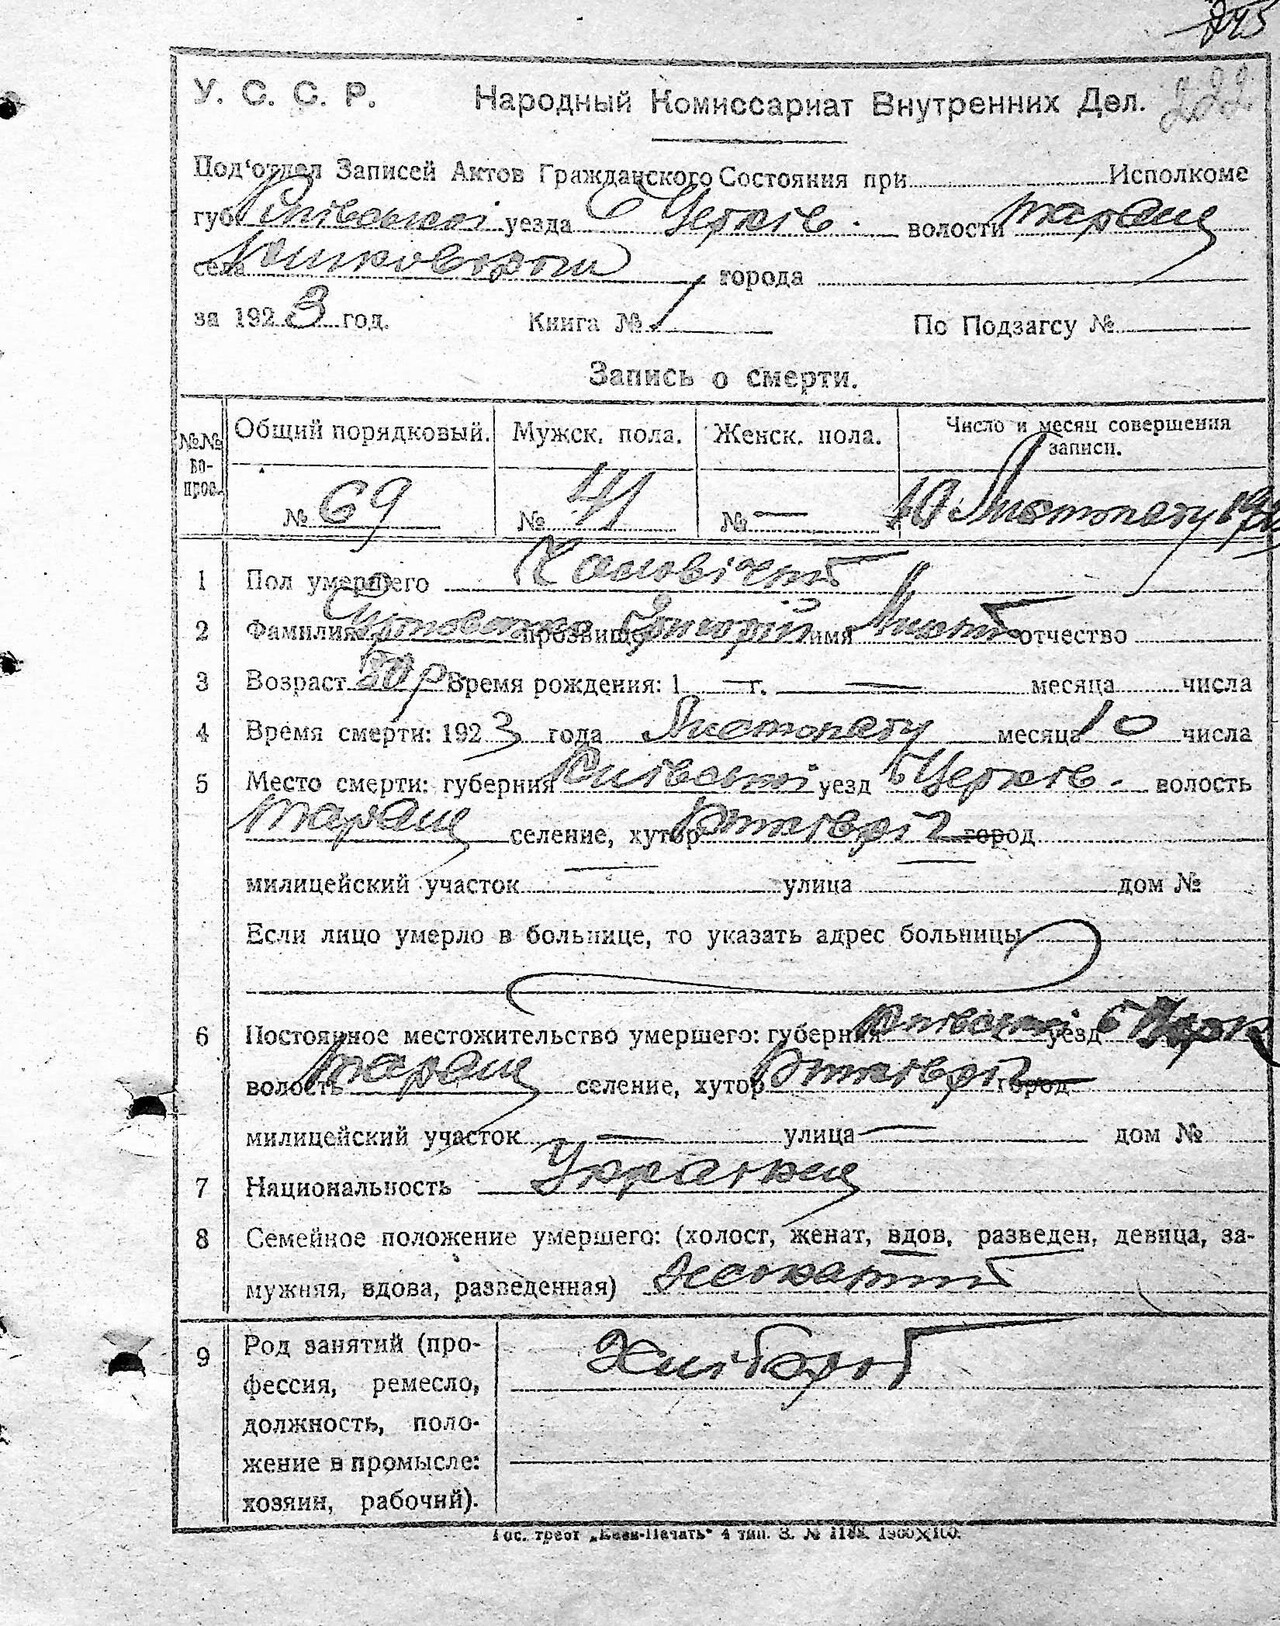 245
У. С. С. Р. Народный Комиссариат Внутренних Дел. 222
Под'отдел Записей Актов Гражданского Состояния при Исполкоме
губ. Київської уезда Б Церків. волости Таращ
села города
за 1923 год. Книга № 1 По Подзагсу №
Запись о смерти.
№№ вопрос. Общий порядковый. Мужск. пола. Женск. пола. Число и месяц совершения записи.
№ 69 № 41 № — 10 Листопаду
1 Пол умершего Чоловічий
2 Фамилия прозвище Григорій имя отчество
3 Возраст Время рождения: 1 — г. — месяца числа
4 Время смерти: 1923 года Листопаду месяца 10 числа
5 Место смерти: губерния Київської уезд Б Церків. волость
Таращ селение, хутор город
милицейский участок — улица — дом №
Если лицо умерло в больнице, то указать адрес больницы
6 Постоянное местожительство умершего: губерния Київської уезд Б Церк
волость Таращ селение, хутор город
милицейский участок — улица — дом №
7 Национальность Українец
8 Семейное положение умершего: (холост, женат, вдов, разведен, девица, за-
мужняя, вдова, разведенная) Жонатий
9 Род занятий (про- Хлібороб
фессия, ремесло,
должность, поло-
жение в промысле:
хозяин, рабочий).
Гос. трест „Киев-Печать" 4 тип. З. № 1188. 1900×100.